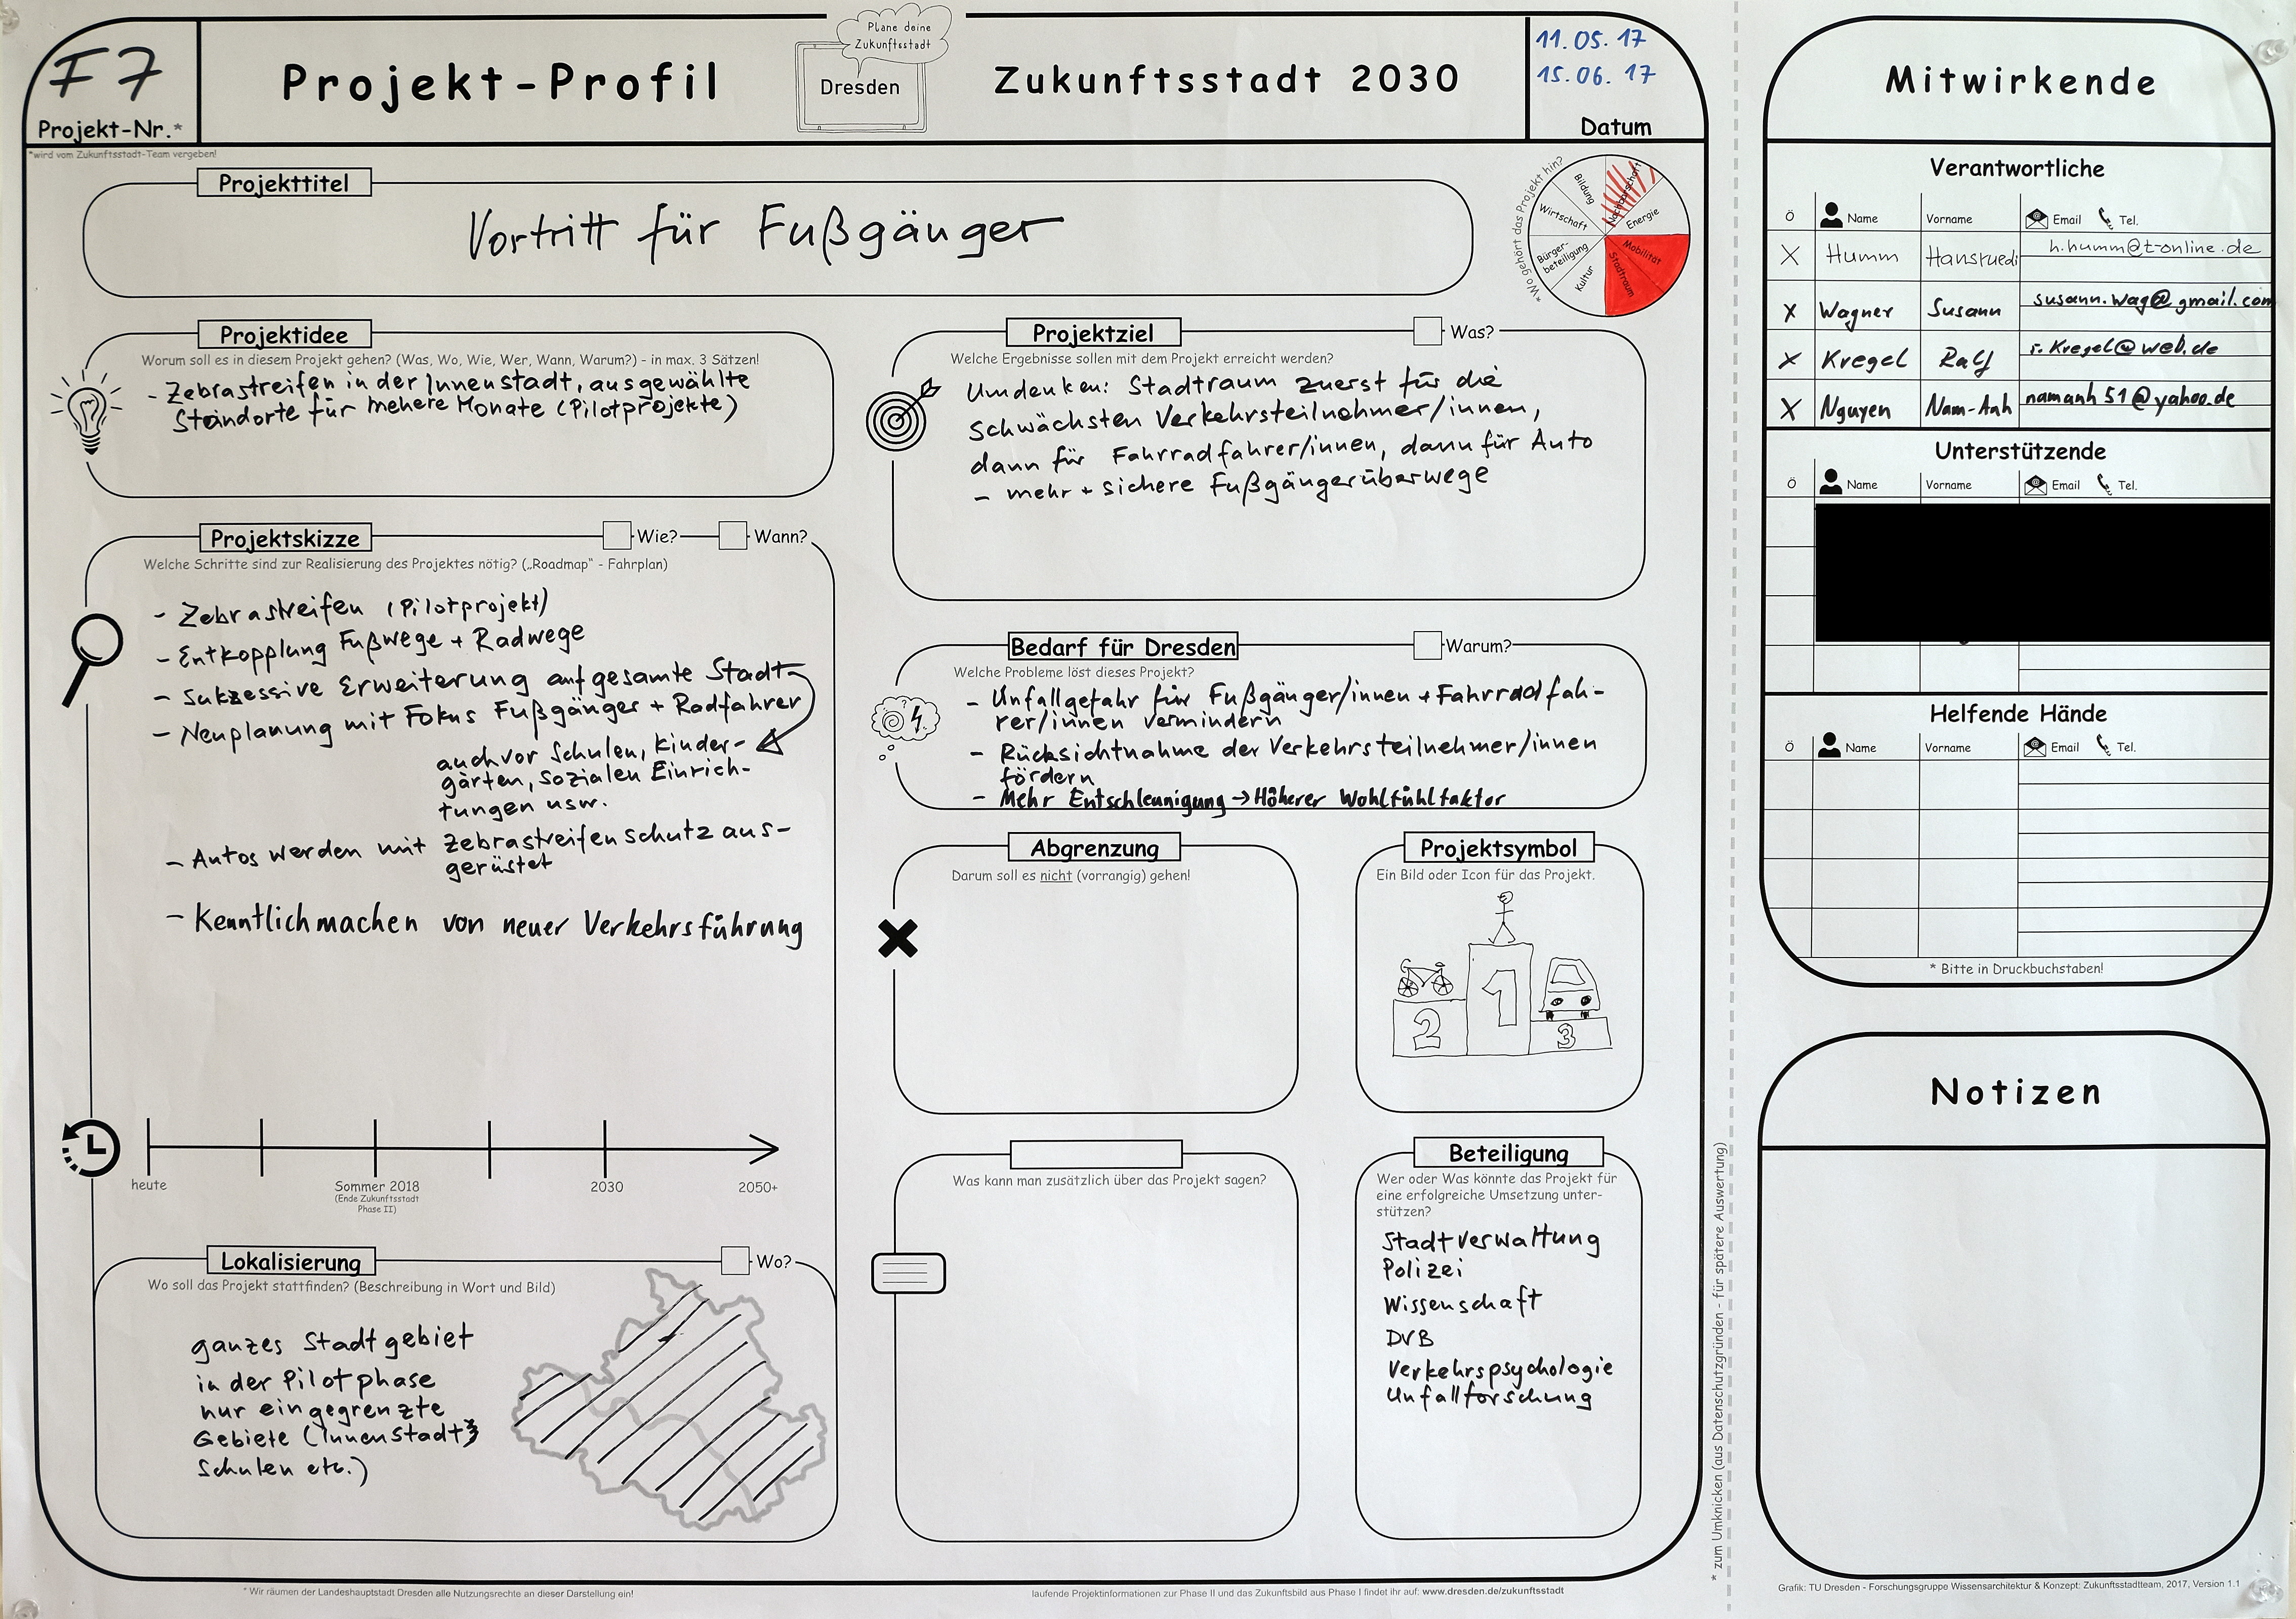 F7
Projekt-Nr.*
*wird vom Zukunftsstadt-Team vergeben!
Projekt-Profil
Plane deine
Zukunftsstadt
Dresden
Zukunftsstadt 2030
11.05.17
15.06.17
Datum
Projekttitel
Vortritt für Fußgänger
*Wo gehört das Projekt hin?
Bildung
Nachbarschaft
Wirtschaft
Energie
Bürger-
beteiligung
Mobilität
Kultur
Stadtraum
Projektidee
Worum soll es in diesem Projekt gehen? (Was, Wo, Wie, Wer, Wann, Warum?) - in max. 3 Sätzen!
- Zebrastreifen in der Innenstadt, ausgewählte
Standorte für mehere Monate (Pilotprojekte)
Projektskizze
Wie?
Wann?
Welche Schritte sind zur Realisierung des Projektes nötig? („Roadmap" - Fahrplan)
- Zebrastreifen (Pilotprojekt)
- Entkopplung Fußwege + Radwege
- Sukzessive Erweiterung auf gesamte Stadt
- Neuplanung mit Fokus Fußgänger + Radfahrer
auch vor Schulen, Kinder-
gärten, sozialen Einrich-
tungen usw.
- Autos werden mit Zebrastreifenschutz aus-
gerüstet
- Kenntlichmachen von neuer Verkehrsführung
heute
Sommer 2018
(Ende Zukunftsstadt
Phase II)
2030
2050+
Lokalisierung
Wo?
Wo soll das Projekt stattfinden? (Beschreibung in Wort und Bild)
ganzes Stadtgebiet
in der Pilotphase
nur eingegrenzte
Gebiete (Innenstadt,
Schulen etc.)
Projektziel
Was?
Welche Ergebnisse sollen mit dem Projekt erreicht werden?
Umdenken: Stadtraum zuerst für die
schwächsten Verkehrsteilnehmer/innen,
dann für Fahrradfahrer/innen, dann für Auto
- mehr + sichere Fußgängerüberwege
Bedarf für Dresden
Warum?
Welche Probleme löst dieses Projekt?
- Unfallgefahr für Fußgänger/innen + Fahrradfah-
rer/innen vermindern
- Rücksichtnahme der Verkehrsteilnehmer/innen
fördern
- Mehr Entschleunigung → Höherer Wohlfühlfaktor
Abgrenzung
Darum soll es nicht (vorrangig) gehen!
Projektsymbol
Ein Bild oder Icon für das Projekt.
1
2
3
Was kann man zusätzlich über das Projekt sagen?
Beteiligung
Wer oder Was könnte das Projekt für
eine erfolgreiche Umsetzung unter-
stützen?
Stadtverwaltung
Polizei
Wissenschaft
DVB
Verkehrspsychologie
Unfallforschung
* Wir räumen der Landeshauptstadt Dresden alle Nutzungsrechte an dieser Darstellung ein!
laufende Projektinformationen zur Phase II und das Zukunftsbild aus Phase I findet ihr auf: www.dresden.de/zukunftsstadt
* zum Umknicken (aus Datenschutzgründen - für spätere Auswertung)
Mitwirkende
Verantwortliche
Ö Name Vorname Email Tel.
X Humm Hansruedi h.humm@t-online.de
X Wagner Susann susann.wag@gmail.com
X Kregel Ralf r.kregel@web.de
X Nguyen Nam-Anh namanh51@yahoo.de
Unterstützende
Ö Name Vorname Email Tel.
Helfende Hände
Ö Name Vorname Email Tel.
* Bitte in Druckbuchstaben!
Notizen
Grafik: TU Dresden - Forschungsgruppe Wissensarchitektur & Konzept: Zukunftsstadtteam, 2017, Version 1.1